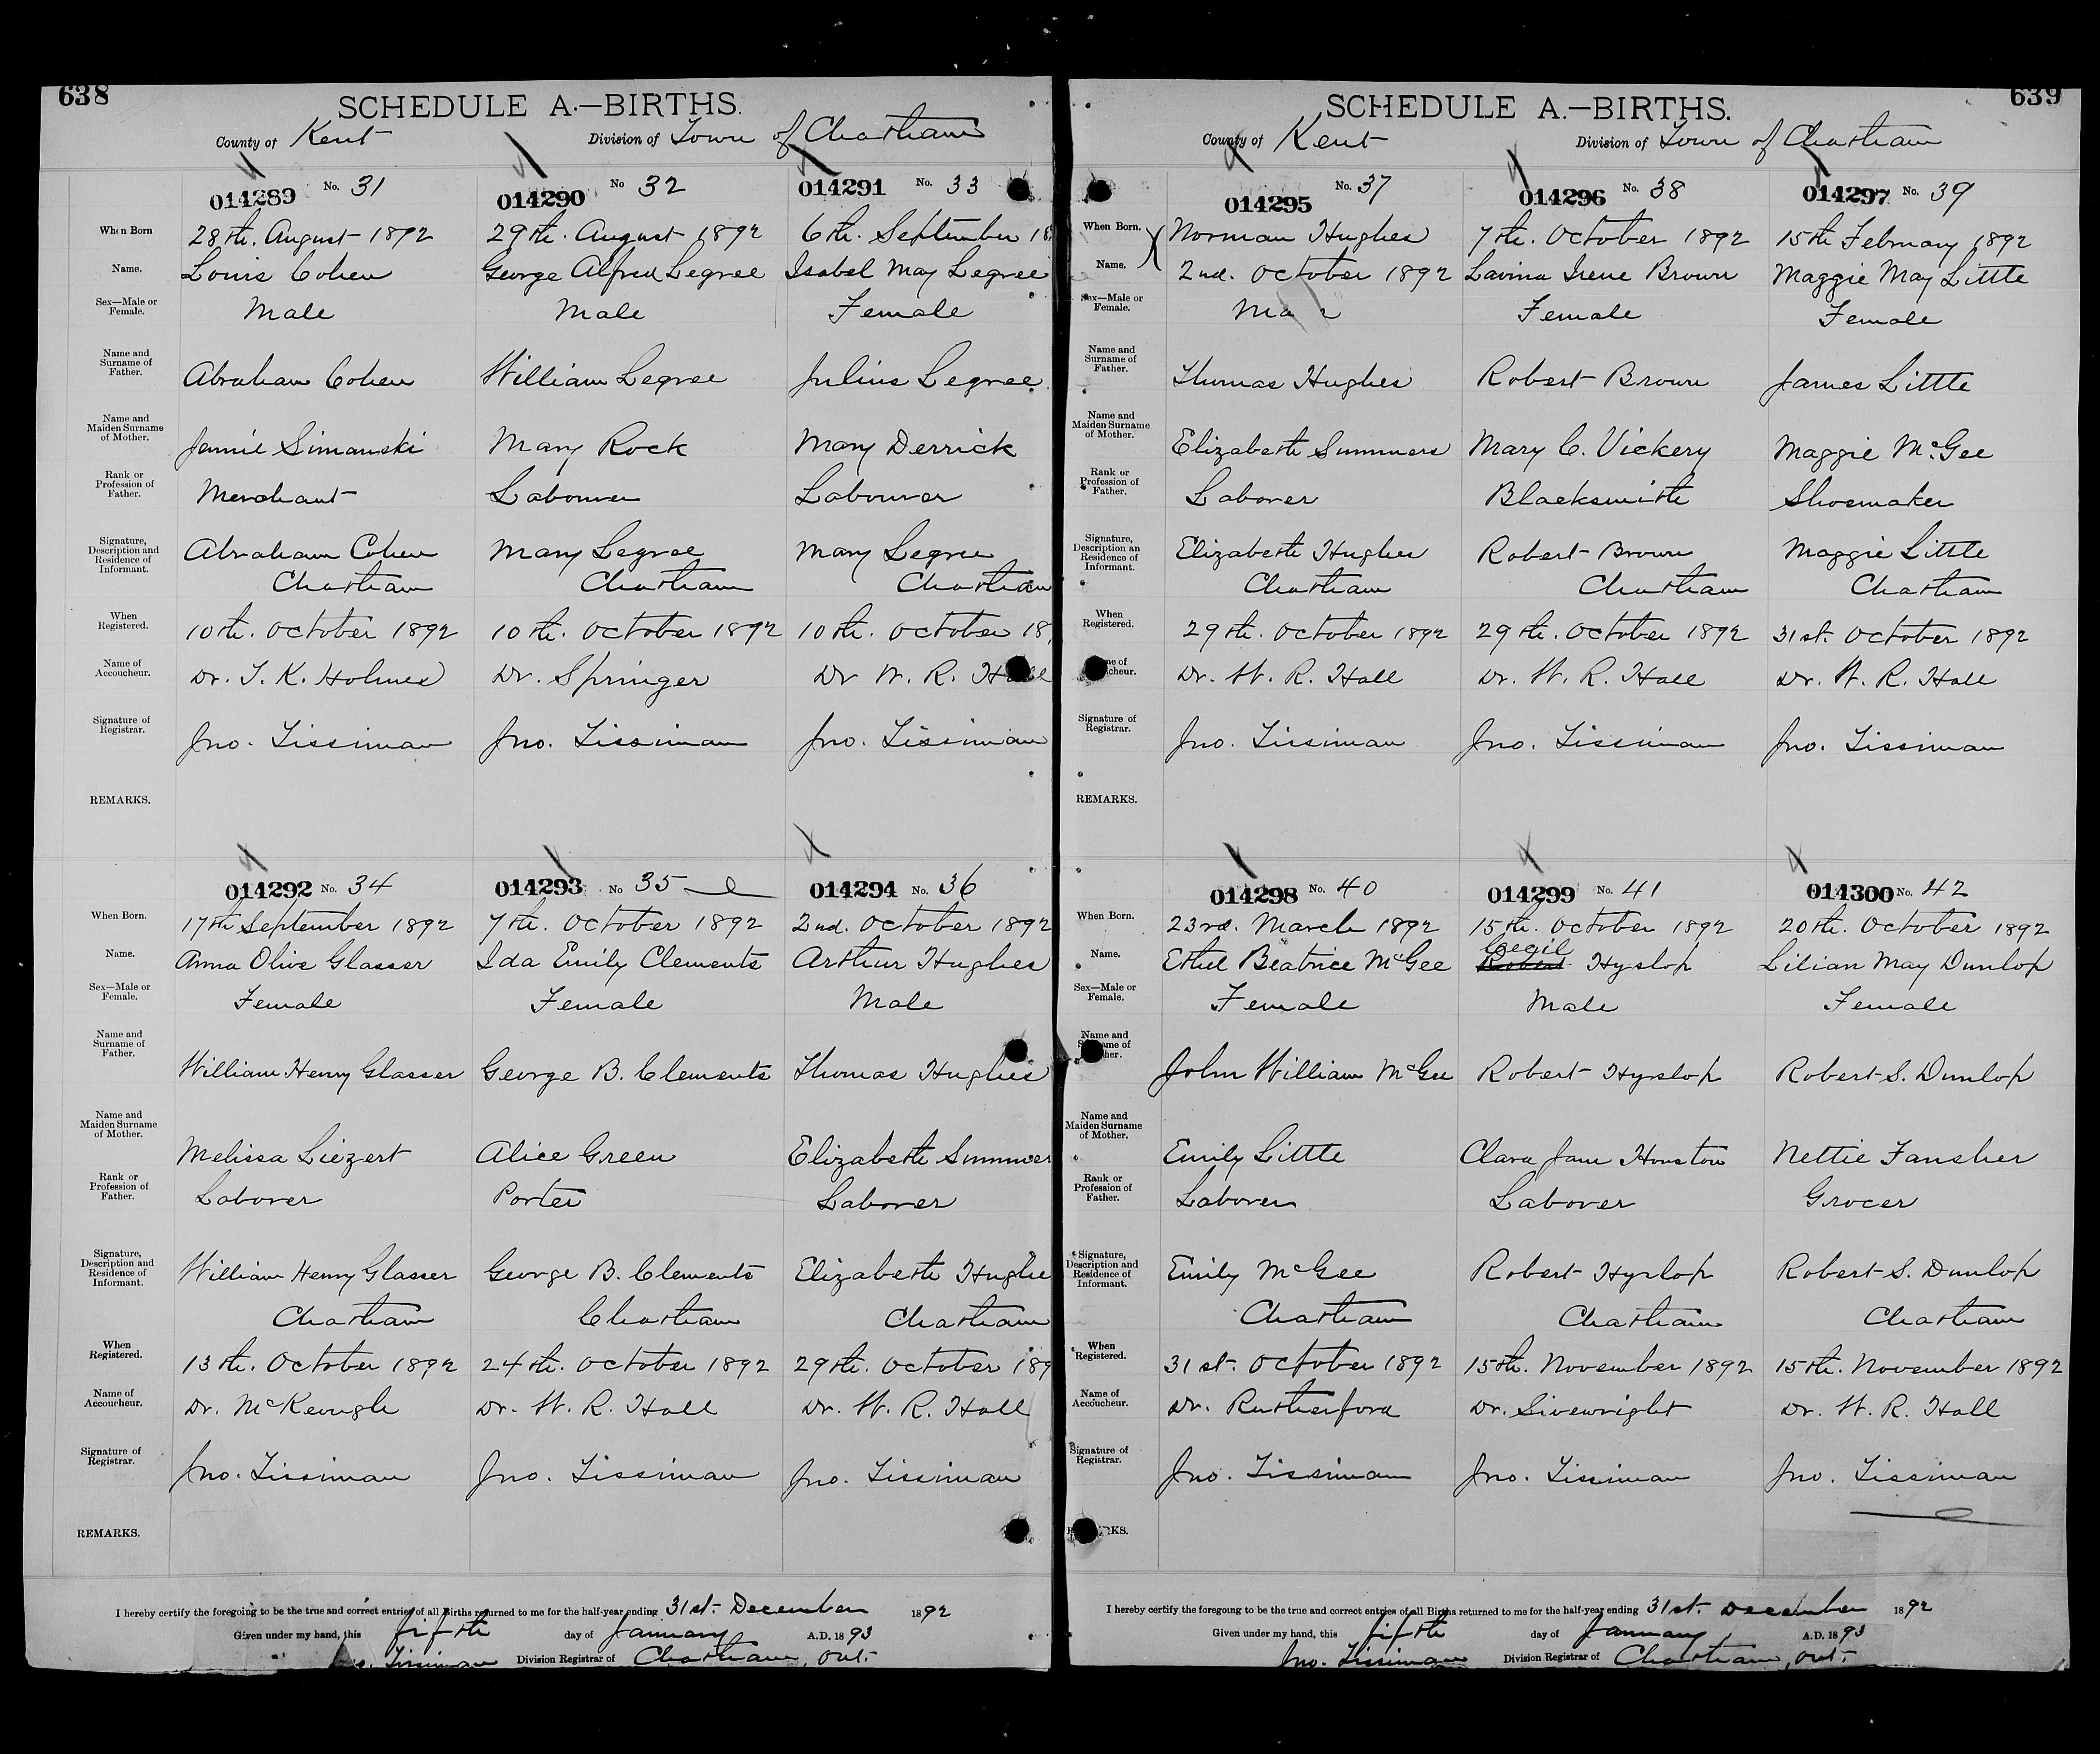 638
SCHEDULE A.—BIRTHS.
County of Kent Division of Town of Chatham
014289 No. 31 014290 No 32 014291 No. 33
When Born 28th. August 1892 29th. August 1892 6th. September 18
Name. Louis Cohen George Alfred Legree Isabel May Legree
Sex—Male or Female. Male Male Female
Name and Surname of Father. Abraham Cohen William Legree Julius Legree
Name and Maiden Surname of Mother. Jennie Simanski Mary Rock Mary Derrick
Rank or Profession of Father. Merchant Labourer Labourer
Signature, Description and Residence of Informant. Abraham Cohen Mary Legree Mary Legree
Chatham Chatham Chatham
When Registered. 10th. October 1892 10th. October 1892 10th. October 18
Name of Accoucheur. Dr. T. K. Holmes Dr. Springer Dr W. R. Hall
Signature of Registrar. Jno. Tissiman Jno. Tissiman Jno. Tissiman
REMARKS.
014292 No. 34 014293 No 35 014294 No. 36
When Born. 17th September 1892 7th. October 1892 2nd. October 1892
Name. Anna Olive Glasser Ida Emily Clements Arthur Hughes
Sex—Male or Female. Female Female Male
Name and Surname of Father. William Henry Glasser George B. Clements Thomas Hughes
Name and Maiden Surname of Mother. Melissa Liezert Alice Green Elizabeth Summers
Rank or Profession of Father. Laborer Porter Laborer
Signature, Description and Residence of Informant. William Henry Glasser George B. Clements Elizabeth Hughe
Chatham Chatham Chatham
When Registered. 13th. October 1892 24th. October 1892 29th. October 189
Name of Accoucheur. Dr. McKeough Dr. W. R. Hall Dr. W. R. Hall
Signature of Registrar. Jno. Tissiman Jno. Tissiman Jno. Tissiman
REMARKS.
I hereby certify the foregoing to be the true and correct entries of all Births returned to me for the half-year ending 31st. December 1892
Given under my hand, this fifth day of January A.D. 1893
Tissiman Division Registrar of Chatham, Ont.
639
SCHEDULE A.—BIRTHS.
County of Kent Division of Town of Chatham
014295 No. 37 014296 No. 38 014297 No. 39
When Born. Norman Hughes 7th. October 1892 15th February 1892
Name. 2nd. October 1892 Lavina Irene Brown Maggie May Little
Sex—Male or Female. Ma Female Female
Name and Surname of Father. Thomas Hughes Robert Brown James Little
Name and Maiden Surname of Mother. Elizabeth Summers Mary C. Vickery Maggie McGee
Rank or Profession of Father. Laborer Blacksmith Shoemaker
Signature, Description an Residence of Informant. Elizabeth Hughes Robert Brown Maggie Little
Chatham Chatham Chatham
When Registered. 29th. October 1892 29th. October 1892 31st. October 1892
me of cheur. Dr. W. R. Hall Dr. W. R. Hall Dr. W. R. Hall
Signature of Registrar. Jno. Tissiman Jno. Tissiman Jno. Tissiman
REMARKS.
014298 No. 40 014299 No. 41 014300 No. 42
When Born. 23rd. March 1892 15th. October 1892 20th. October 1892
Name. Ethel Beatrice McGee Cecil Robert Hyslop Lilian May Dunlop
Sex—Male or Female. Female Male Female
Name and Surname of Father. John William McGee Robert Hyslop Robert S. Dunlop
Name and Maiden Surname of Mother. Emily Little Clara Jane Houston Nettie Fansher
Rank or Profession of Father. Laborer Laborer Grocer
Signature, Description and Residence of Informant. Emily McGee Robert Hyslop Robert S. Dunlop
Chatham Chatham Chatham
When Registered. 31st. October 1892 15th. November 1892 15th. November 1892
Name of Accoucheur. Dr. Rutherford Dr. Sivewright Dr. W. R. Hall
Signature of Registrar. Jno. Tissiman Jno. Tissiman Jno. Tissiman
RKS.
I hereby certify the foregoing to be the true and correct entries of all Births returned to me for the half-year ending 31st. December 1892
Given under my hand, this fifth day of January, A.D. 1893
Jno. Tissiman Division Registrar of Chatham, Ont.